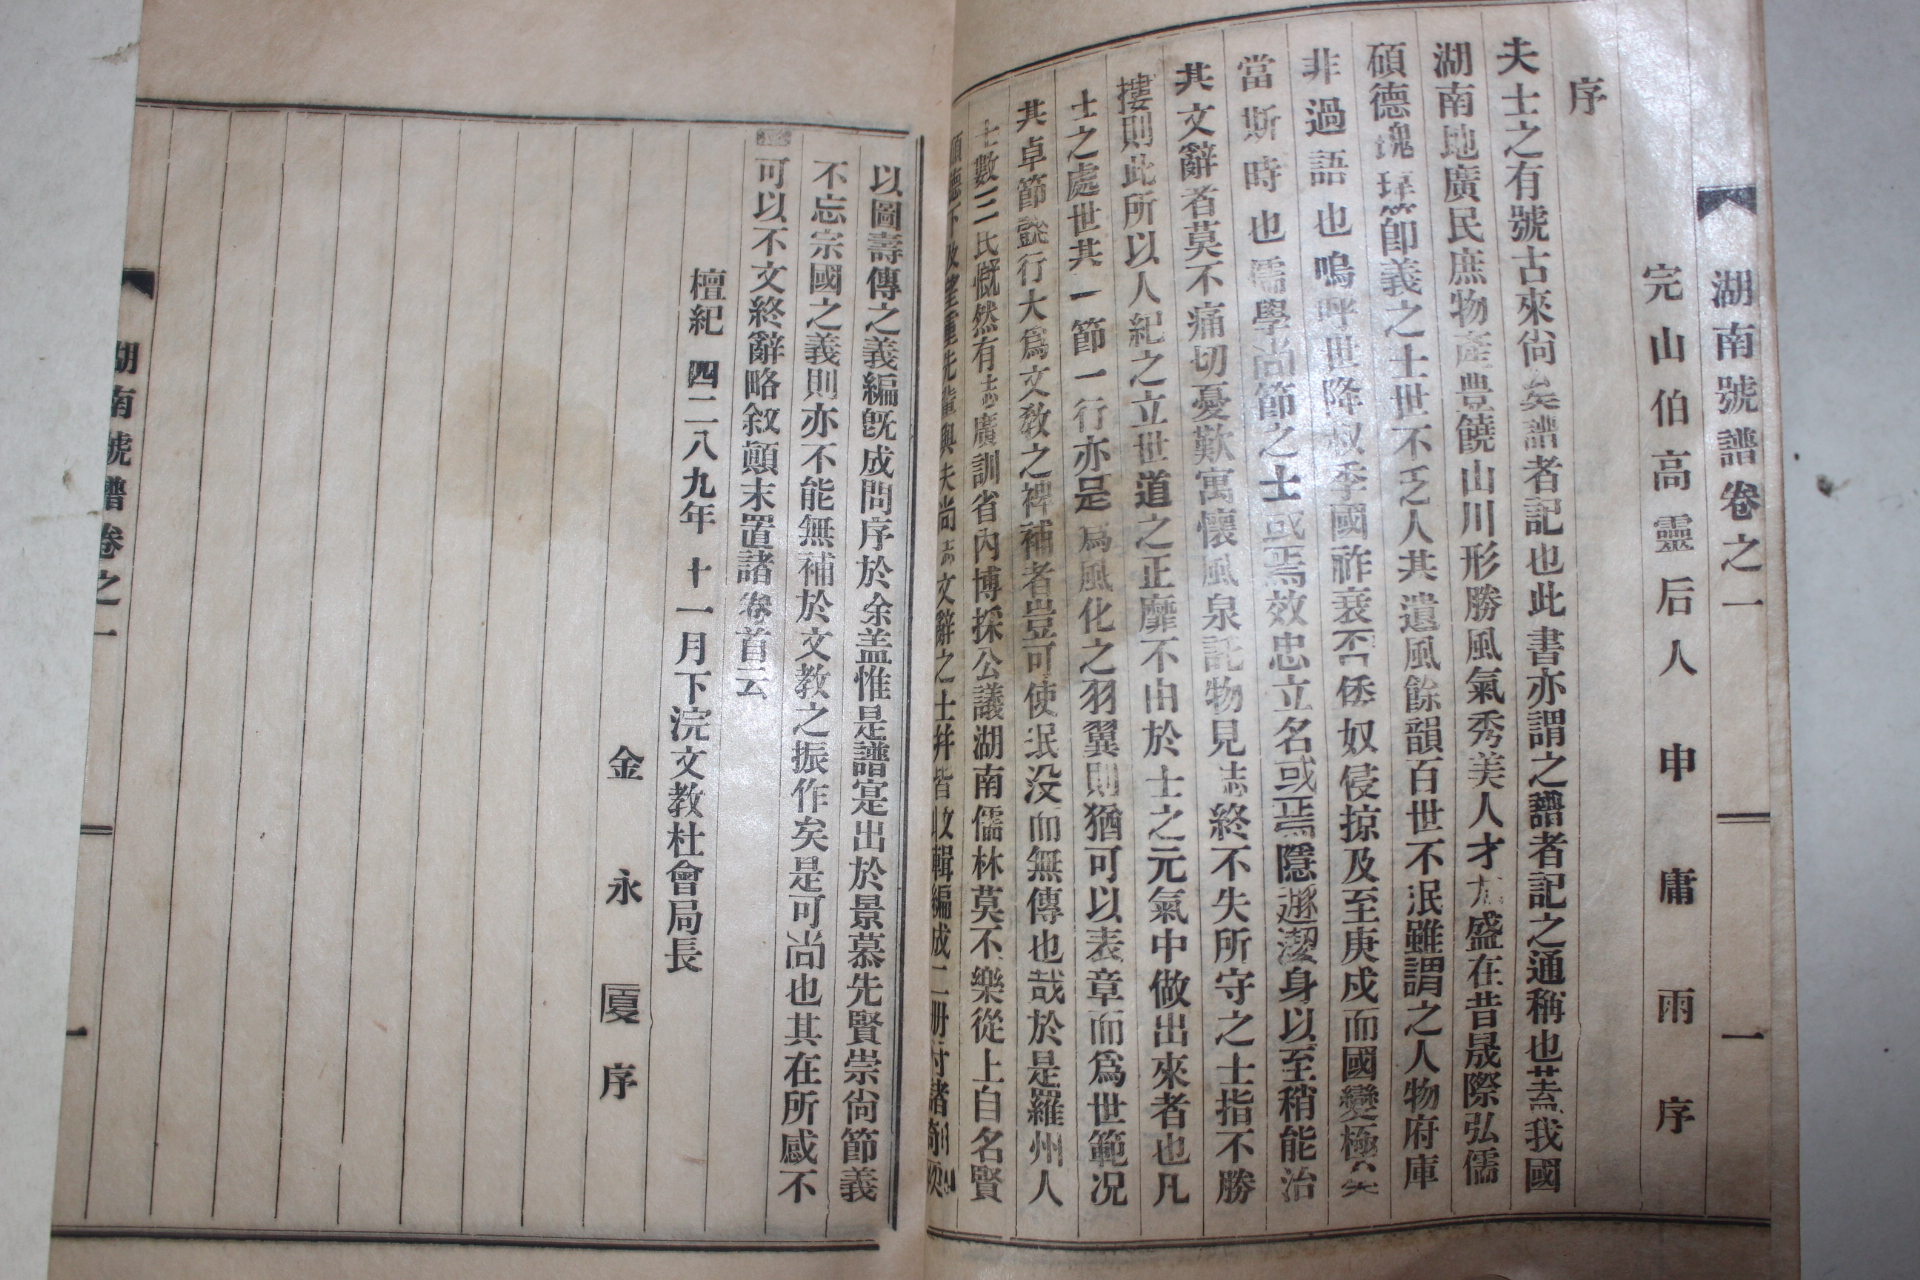 湖南號譜卷之一 一
完山伯高靈后人 申庸雨 序
序
夫士之有號古來尙矣譜者記也此書亦謂之譜者記之通稱也盖我國
湖南地廣民庶物產豊饒山川形勝風氣秀美人才尤盛在昔晟際弘儒
碩德瑰琒節義之士世不乏人其遺風餘韻百世不泯雖謂之人物府庫
非過語也嗚呼世降叔季國祚衰否倭奴侵掠及至庚戌而國變極矣
當斯時也儒學尙節之士或焉效忠立名或焉隱遯潔身以至稍能治
其文辭者莫不痛切憂歎寓懷風泉託物見志終不失所守之士指不勝
摟則此所以人紀之立世道之正靡不由於士之元氣中做出來者也凡
士之處世其一節一行亦足爲風化之羽翼則猶可以表章而爲世範况
其卓節懿行大爲文敎之裨補者豈可使泯没而無傳也哉於是羅州人
士數三氏慨然有志廣訓省內博採公議湖南儒林莫不樂從上自名賢
碩德下及望重先輩與夫尙志文辭之士幷皆收輯編成二册付諸
以圖壽傳之義編旣成問序於余盖惟是譜寔出於景慕先賢崇尙節義
不忘宗國之義則亦不能無補於文敎之振作矣是可尙也其在所感不
可以不文終辭略敘顚末置諸卷首云
檀紀 四二八九年 十一月下浣文敎社會局長
金永厦序
湖南號譜卷之一 一